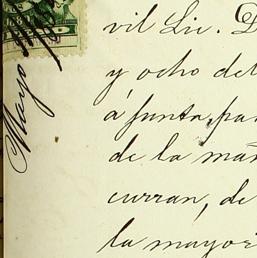 vil Lic.
y ocho del
á junta, pa
de la mañ
curran, de
la mayori
Mayo